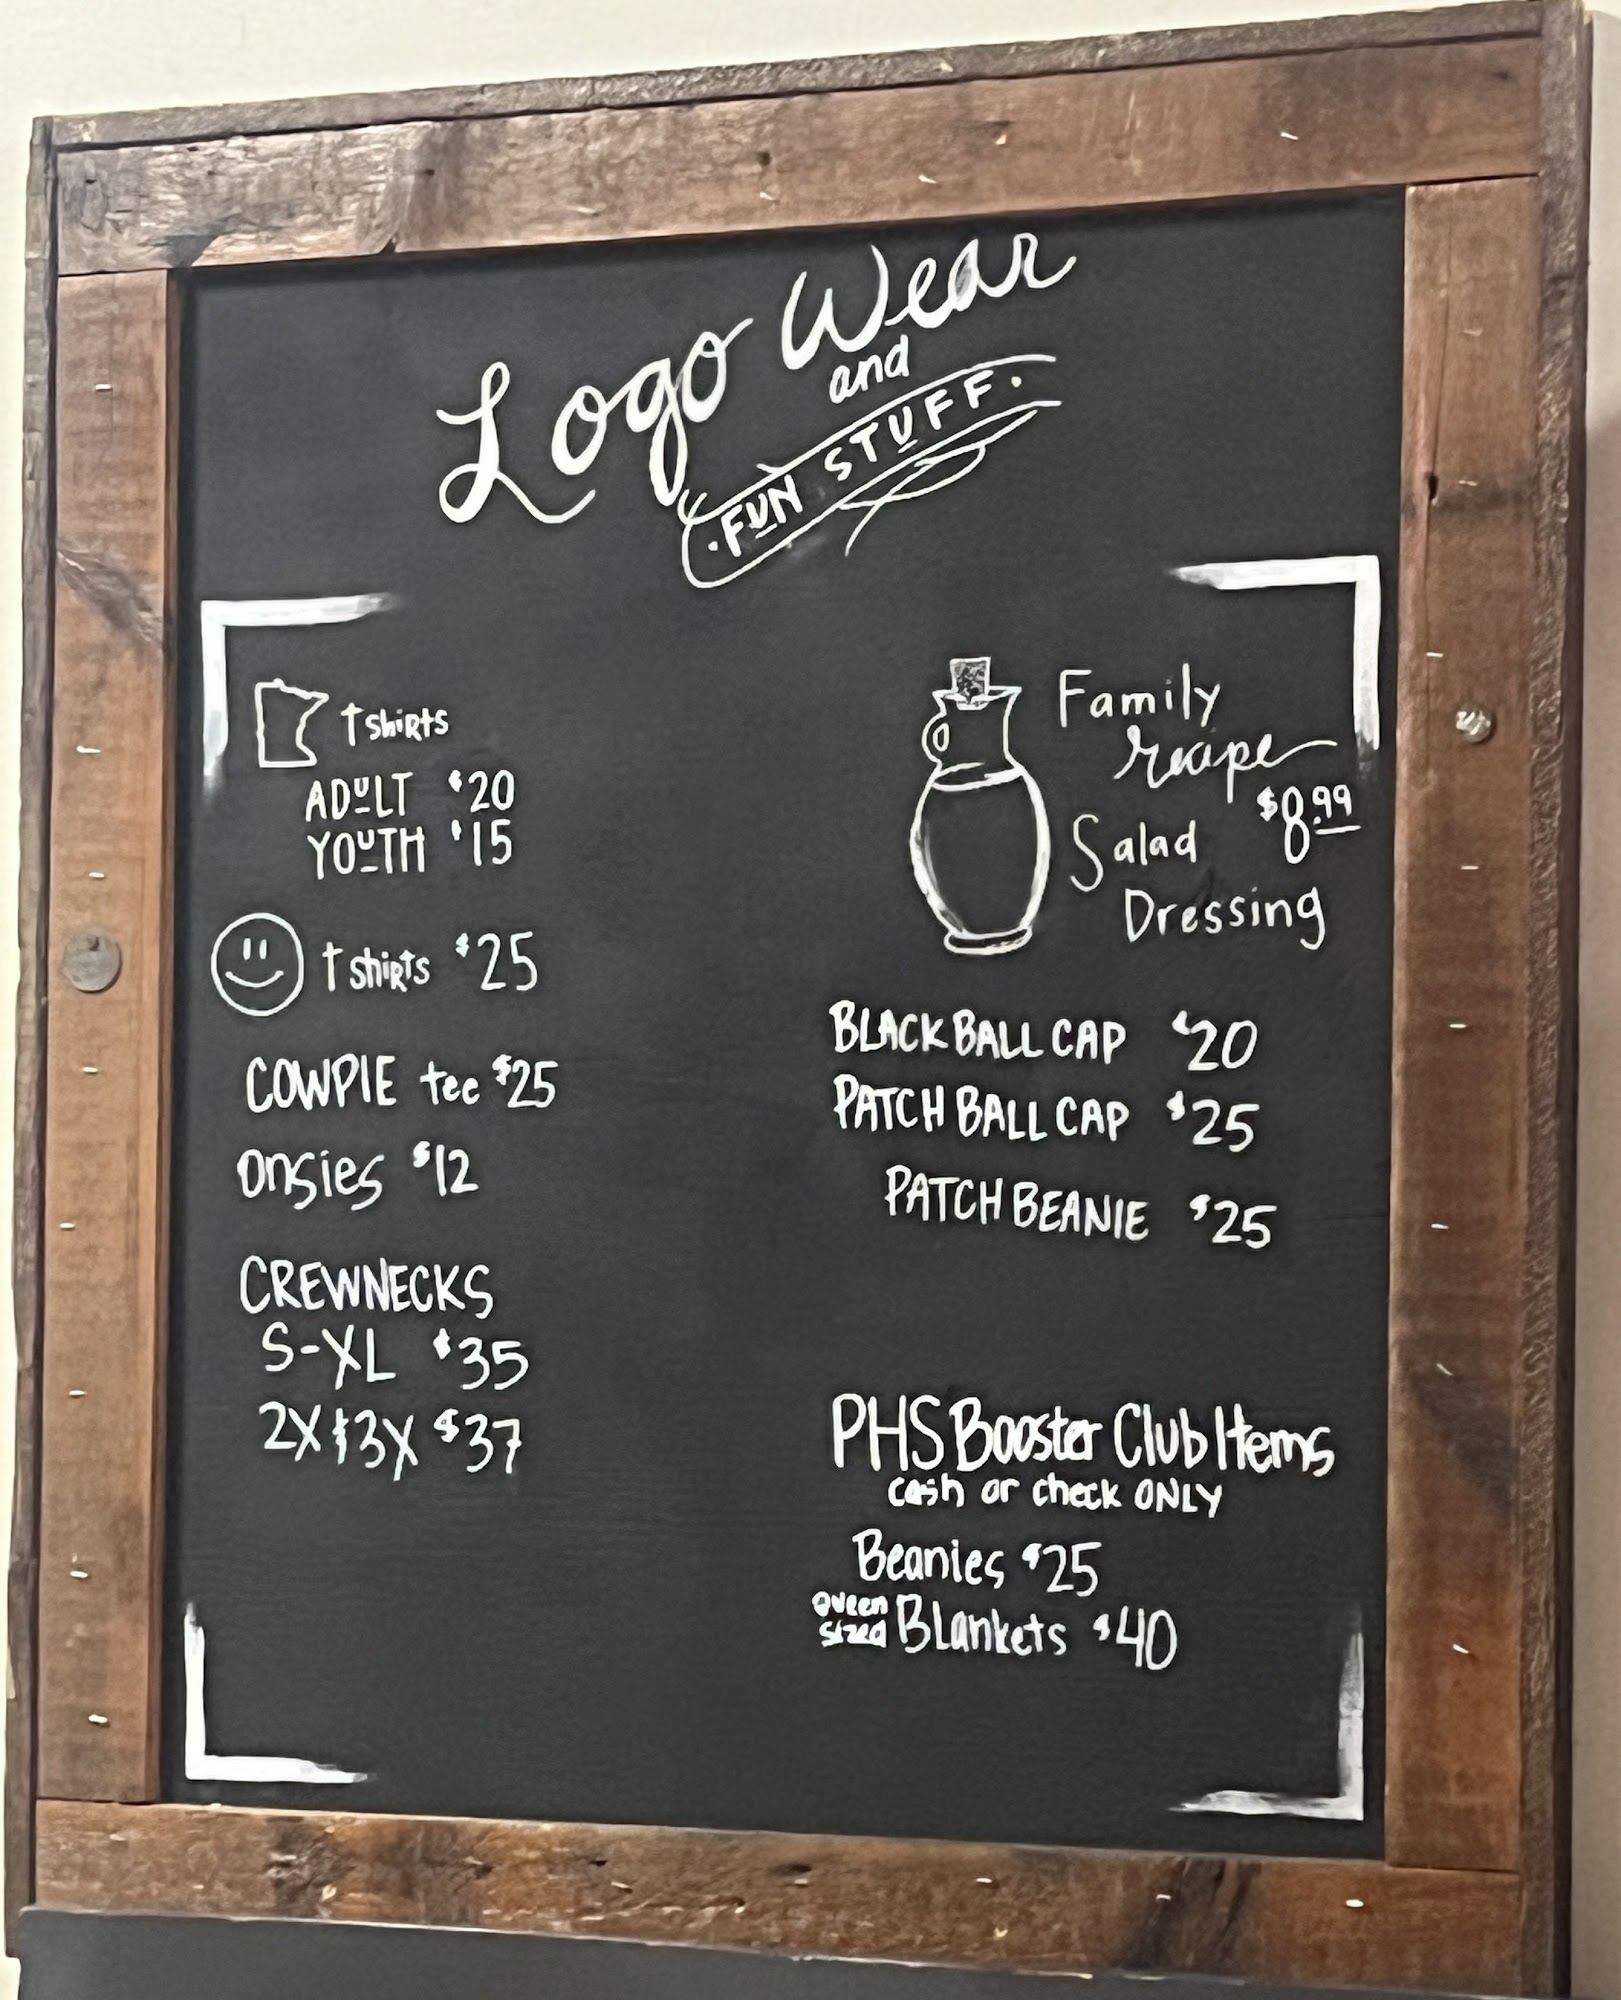 Logo Wear
and
·FUN STUFF·
tshirts
ADULT $20
YOUTH $15
tshirts $25
COWPIE tee $25
Onsies $12
CREWNECKS
S-XL $35
2X & 3X $37
Family
recipe
$8.99
Salad
Dressing
BLACK BALL CAP $20
PATCH BALL CAP $25
PATCH BEANIE $25
PHS Booster Club Items
cash or check ONLY
Beanies $25
Queen
sized Blankets $40